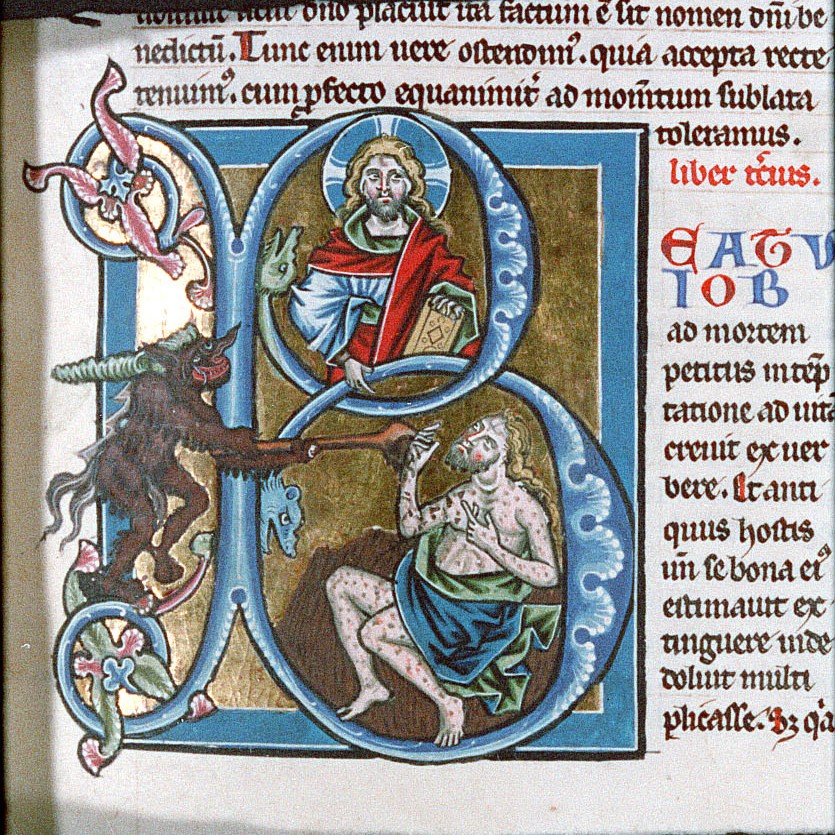 dn̄o placuit ita factum ē sit nomen dn̄i be
nedictū. Tunc enim uere ostendimꝰ. quia accepta recte
tenuimꝰ. cum ꝑfecto equanimit̄ ad mom̄tum sublata
toleramus.
liber tc̄ius.
B
EATU
IOB
ad mortem
petitus int̄ep̄
tatione ad uitā
creuit ex uer
bere. At anti
quus hostis
un̄ se bona eiꝰ
estimauit ex
tinguere inde
doluit multi
plicasse. Sꝫ